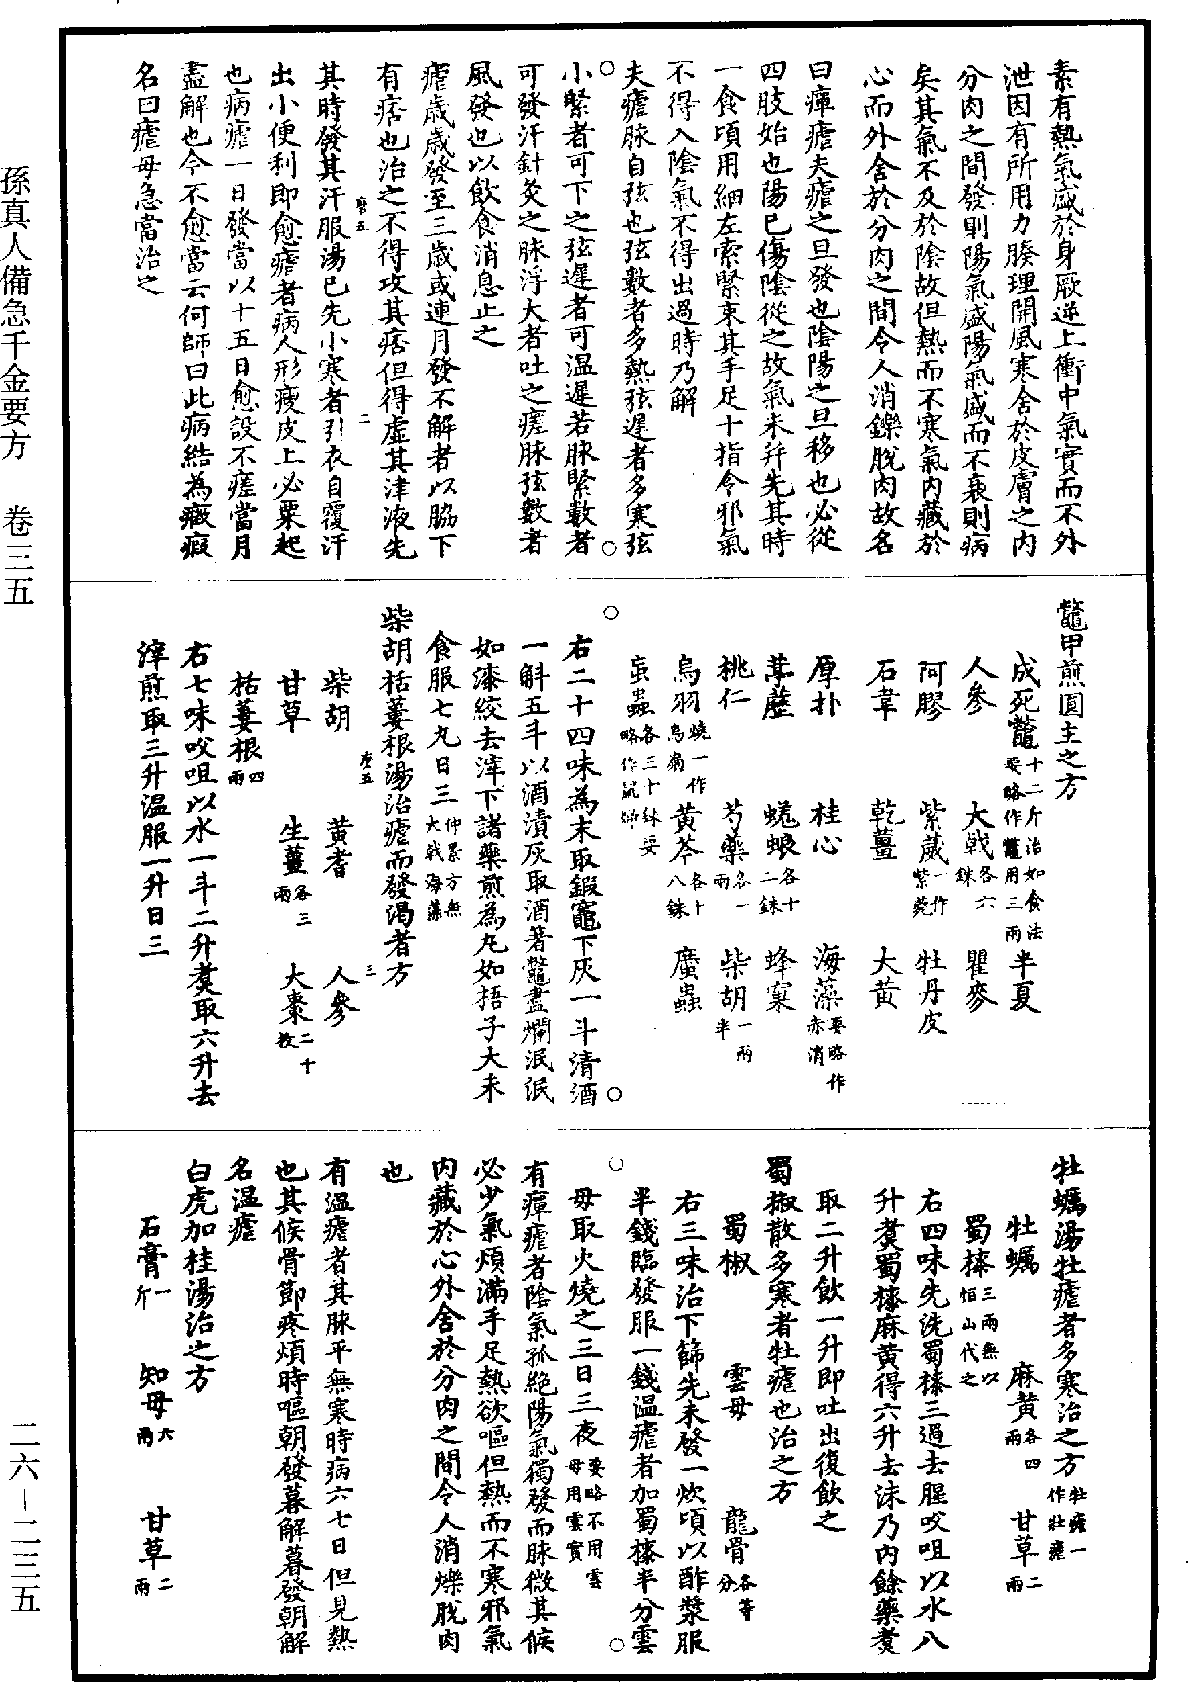 素有熱氣盛於身厥逆上衝中氣實而不外
泄因有所用力腠理開風寒舍於皮膚之内
分肉之間發則陽氣盛陽氣盛而不衰則病
矣其氣不及於陰故但熱而不寒氣内藏於
心而外舍於分肉之間令人消鑠脫肉故名
曰癉瘧夫瘧之旦發也陰陽之旦移也必從
四肢始也陽已傷陰從之故氣未并先其時
一食頃用細左索緊束其手足十指令邪氣
不得入陰氣不得出過時乃解
夫瘧脉自弦也弦數者多熱弦遲者多寒弦
小緊者可下之弦遲者可温遲若脉緊數者
可發汗針灸之脉浮大者吐之瘥脉弦數者
風發也以飲食消息止之
瘧歲歲發至三歲或連月發不解者以脇下
有痞也治之不得攻其痞但得虚其津液先
其時發其汗服湯已先小寒者引衣自覆汗
出小便利即愈瘧者病人形瘦皮上必粟起
也病瘧一日發當以十五日愈設不瘥當月
盡解也今不愈當云何師曰此病結為癥瘕
名曰瘧母急當治之
鼈甲煎圓主之方
成死鼈十二斤治如食法要略作鼈用三兩 半夏
人參 大戟各六銖 瞿麥
阿膠 紫葳一作紫菀 牡丹皮
石韋 乾薑 大黄
厚朴 桂心 海藻要略作赤消
葶藶 蜣蜋各十二銖 蜂窠
桃仁 芍藥各一兩 柴胡一兩半
烏羽燒一作烏扇 黄芩各十八銖 䗪蟲
䖟蟲各三十銖要略作鼠婦
右二十四味為末取鍛竈下灰一斗清酒
一斛五斗以酒漬灰取酒著鼈盡爛泯泯
如漆絞去滓下諸藥煎為丸如捂子大未
食服七丸日三仲景方無大戟海藻
柴胡栝蔞根湯治瘧而發渴者方
柴胡 黄耆 人參
甘草 生薑各三兩 大棗二十枚
栝蔞根四兩
右七味㕮咀以水一斗二升煑取六升去
滓煎取三升温服一升日三
牡蠣湯牡瘧者多寒治之方牡瘧一作牡瘧
牡蠣 麻黄各四兩 甘草二兩
蜀㯶三兩無以恒山代之
右四味先洗蜀㯶三過去腥㕮咀以水八
升煑蜀㯶麻黄得六升去沫乃内餘藥煑
取二升飲一升即吐出復飲之
蜀椒散多寒者牡瘧也治之方
蜀椒 雲母 龍骨各等分
右三味治下篩先未發一炊頃以酢漿服
半錢臨發服一錢温瘧者加蜀㯶半分雲
母取火燒之三日三夜要略不用雲母用雲實
有癉瘧者陰氣孤絶陽氣獨發而脉微其候
必少氣煩滿手足熱欲嘔但熱而不寒邪氣
内藏於心外舍於分肉之間令人消爍脫肉
也
有温瘧者其脉平無寒時病六七日但見熱
也其候骨節疼煩時嘔朝發暮解暮發朝解
名温瘧
白虎加桂湯治之方
石膏一斤 知母六兩 甘草二兩
孫真人備急千金要方 卷三五
二六－二三五